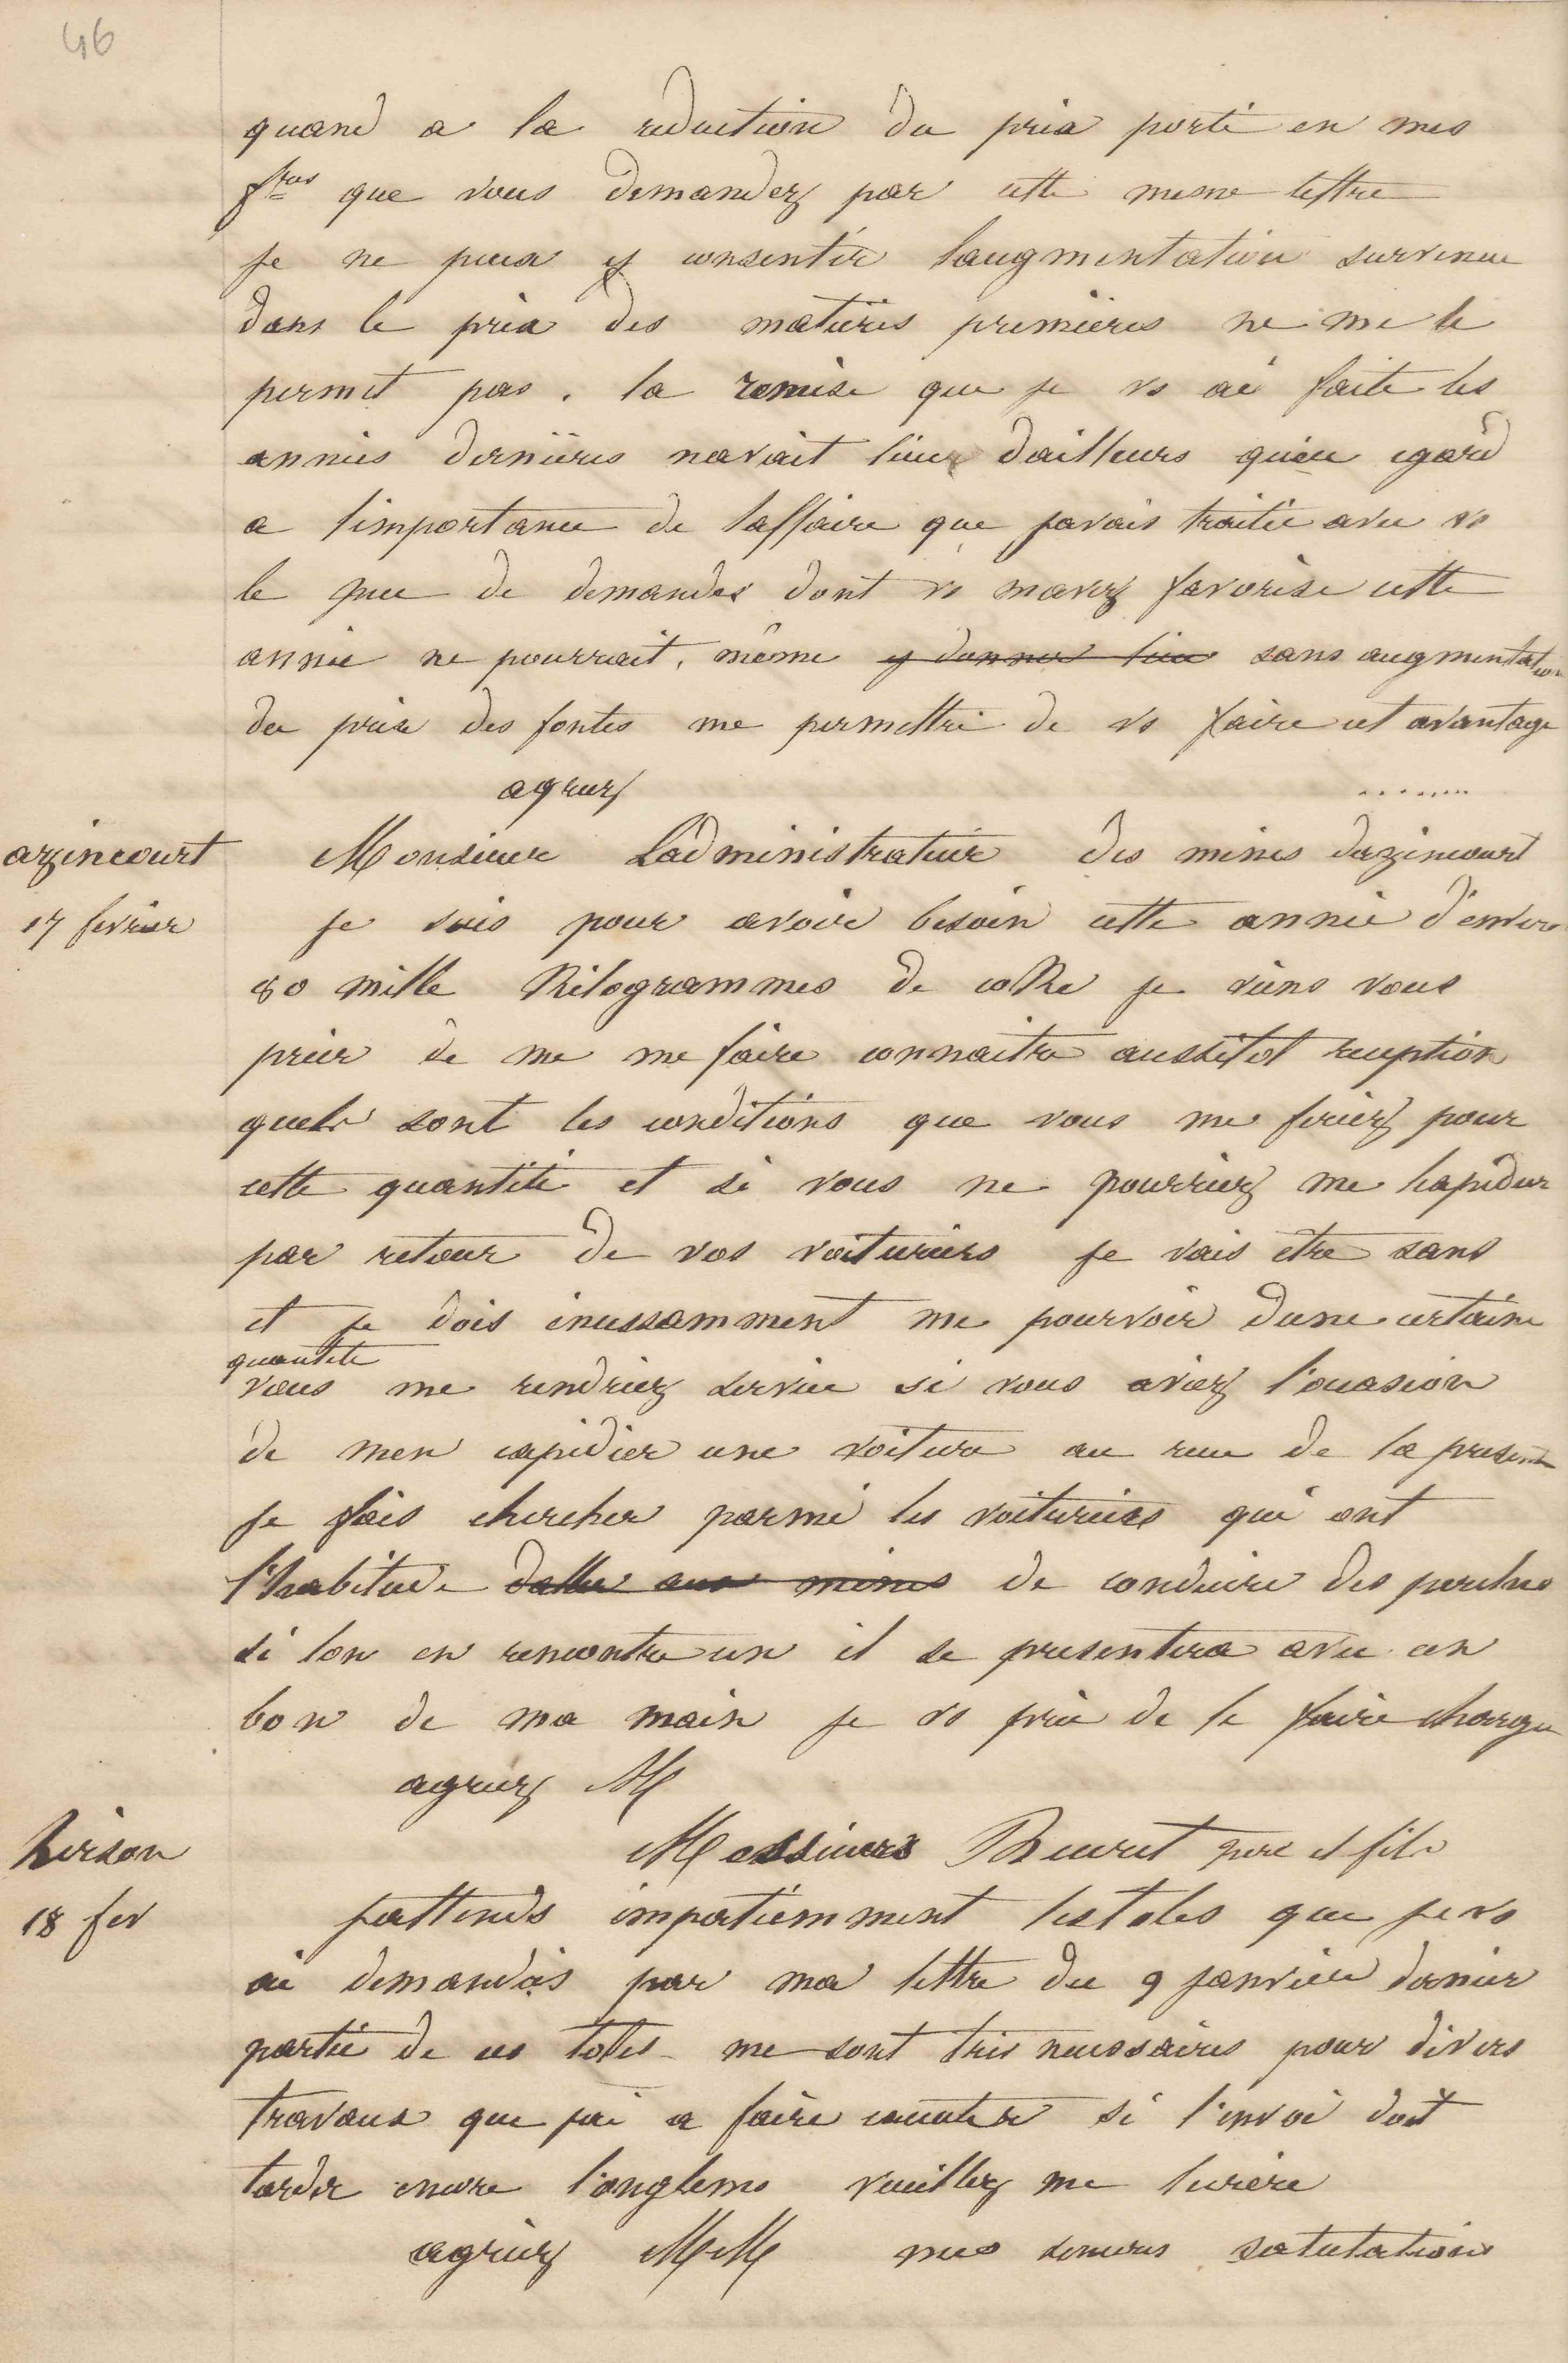 46
quand a la reduction du prix porté en mes
fres que vous demandez par cette meme lettre
je ne puis y consentir laugmentation survenue
dans le prix des matières premières ne me le
permet pas. la remise que je vs ai faite les
années dernières navait lieu dailleurs qu'eu egard
a limportance de laffaire que javais traitée avec vs
le peu de demandes dont vs mavez favorisé cette
année ne pourrait, même y donner lieu sans augmentation
du prix des fontes me permettre de vs faire cet avantage
agréez ........
azincourt
17 fevrier
Monsieur Ladministrateur des mines dazincourt
je suis pour avoir besoin cette année d'environ
80 mille Kilogrammes de coke je viens vous
prier de me me faire connaitre aussitot reception
quels sont les conditions que vous me feriez pour
cette quantité et si vous ne pourriez me lexpedier
par retour de vos voituriers je vais etre sans
et je dois incessamment me pourvoir dune certaine
quantité
vous me rendriez service si vous aviez l'occasion
de men expédier une voiture au recu de la presente
je fais chercher parmi les voituriers qui ont
l'habitude daller aux mines de conduire des perches
si lon en rencontre un il se presentera avec un
bon de ma main je vs prie de le faire charger
agréez M
hirson
18 fev
Messieurs Beuret pere et fils
jattends impatiemment les toles que je vs
ai demandés par ma lettre du 9 janvier dernier
partie de ces toles me sont tres necessaires pour divers
travaux que jai a faire executer si l'envoi doit
tarder encore longtems veuillez me lecrire
agréez MM mes sinceres salutations